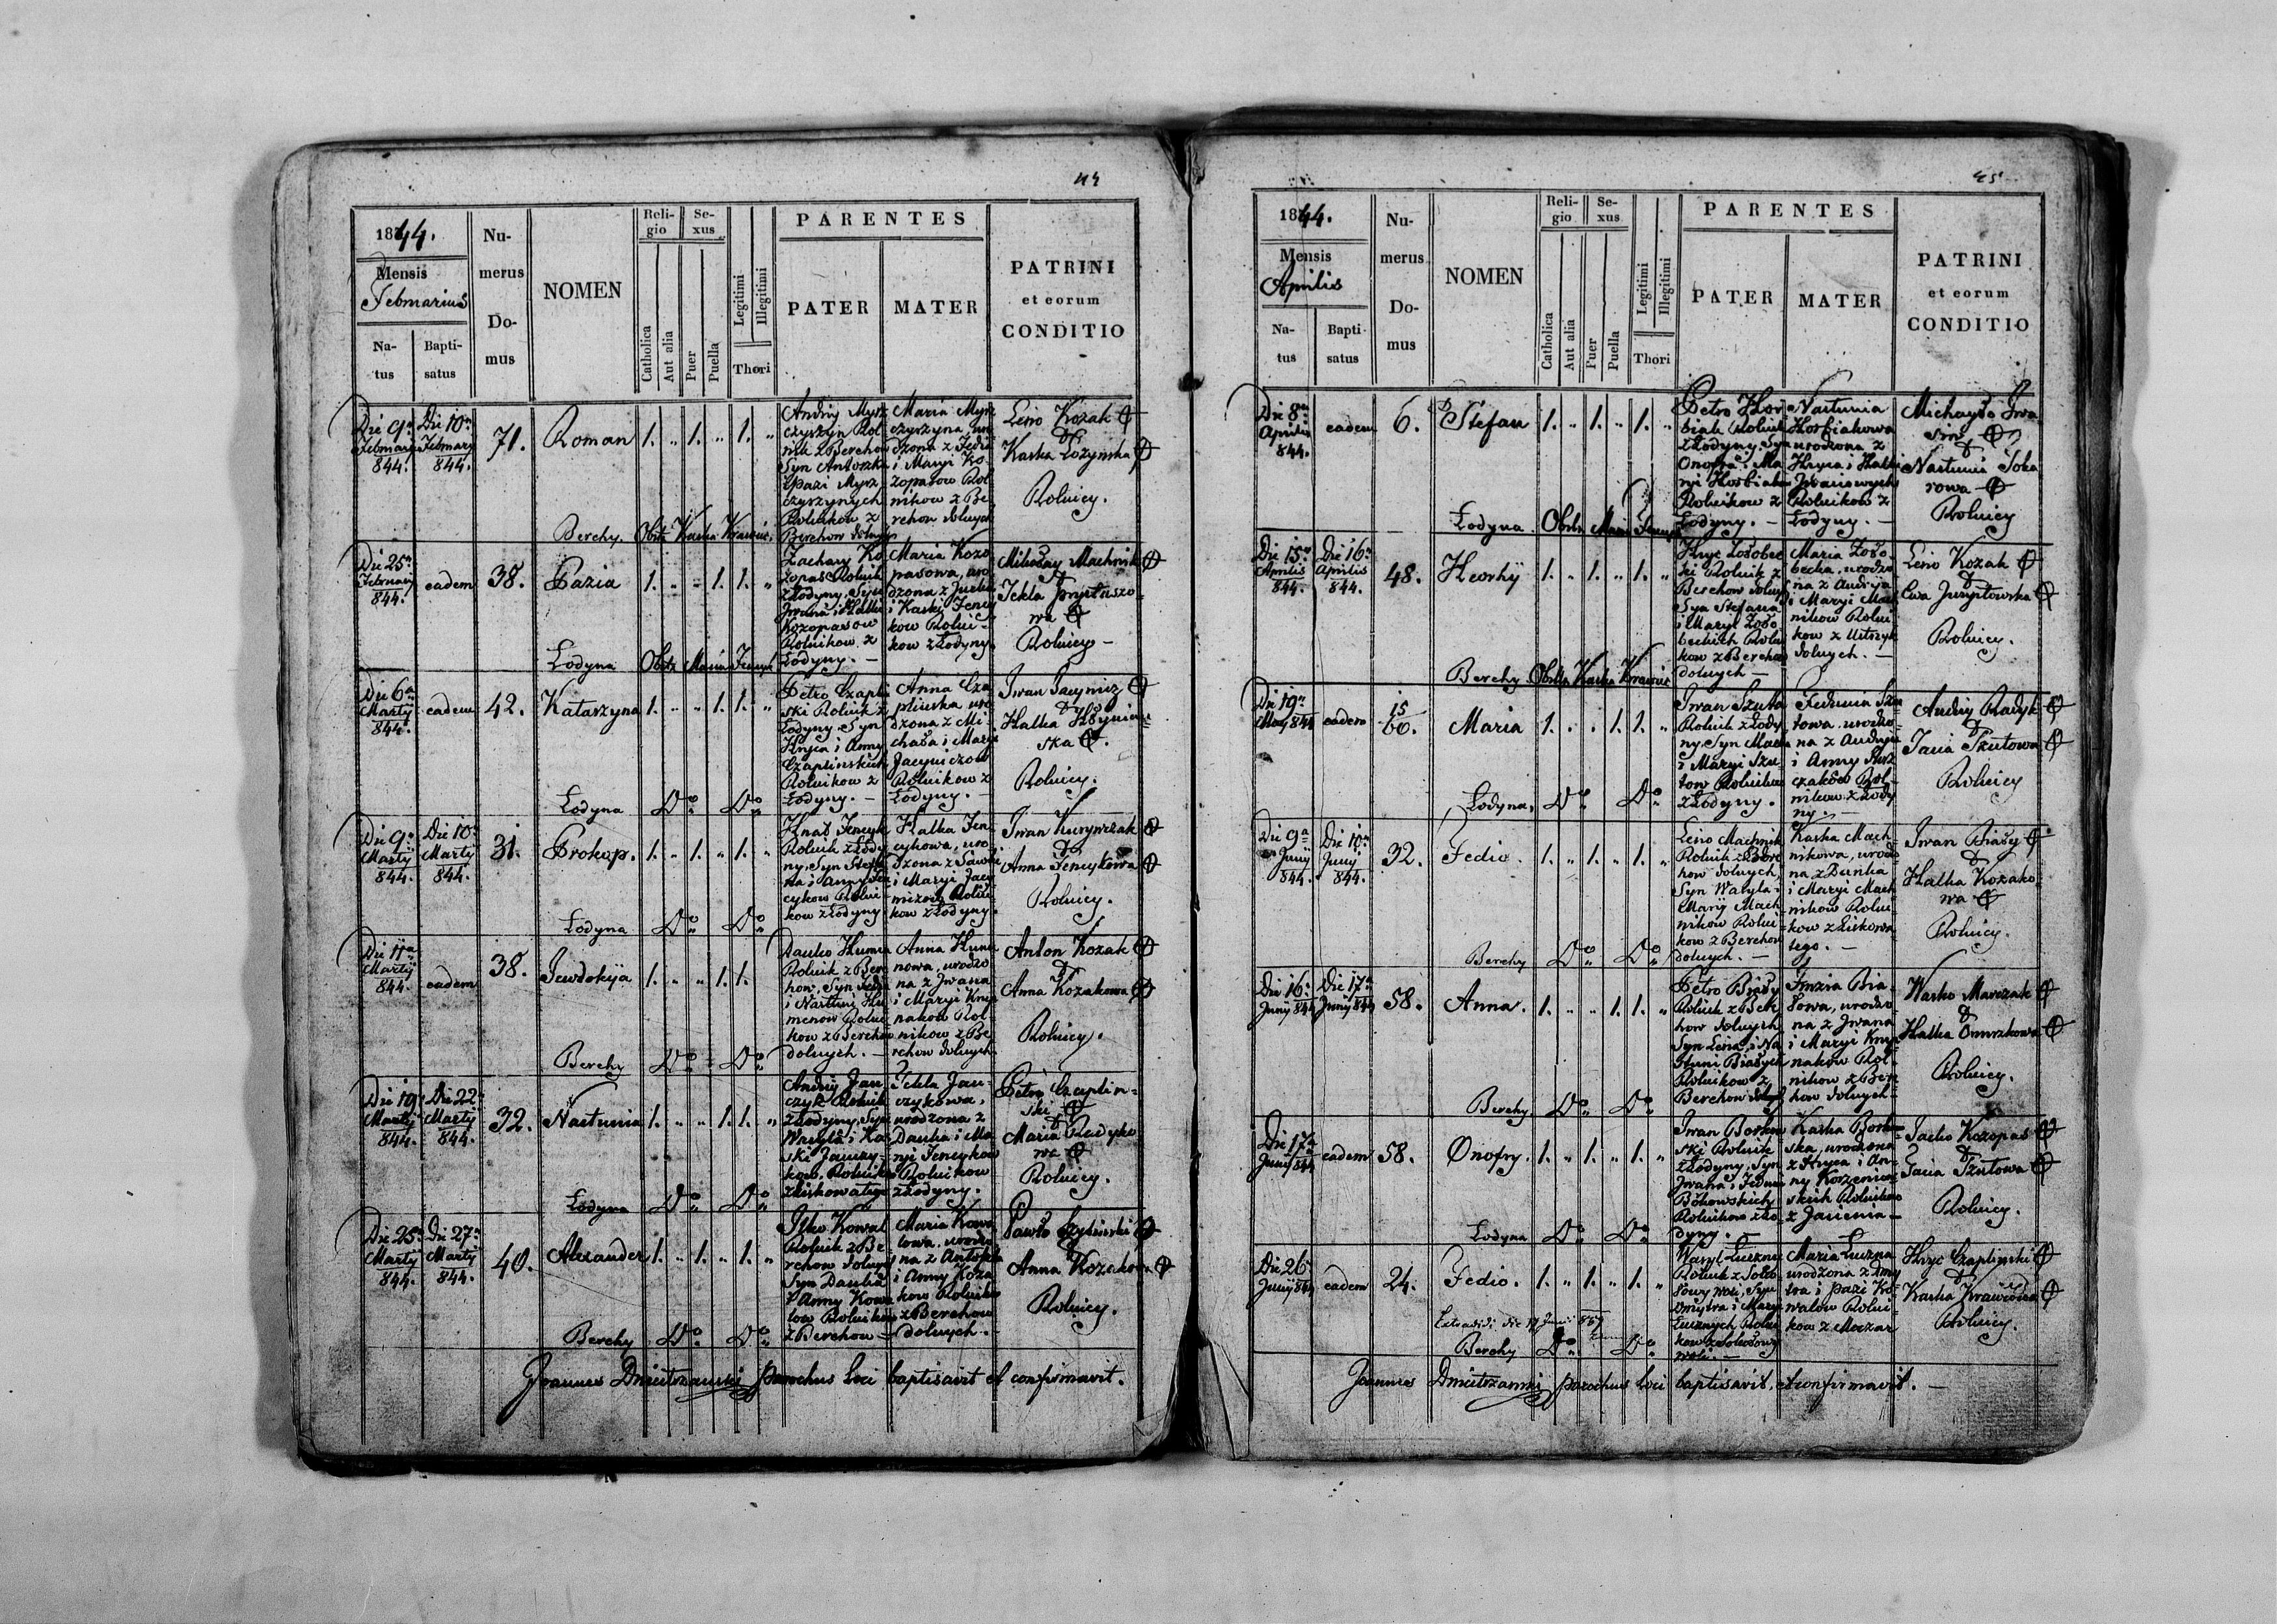 44
1844.
Mensis
Februarius
Na-
tus
Bapti-
satus
Nu-
merus
Do-
mus
NOMEN
Reli-
gio
Catholica
Aut alia
Se-
xus
Puer
Puella
Legitimi
Illegitimi
Thori
PARENTES
PATER
MATER
PATRINI
et eorum
CONDITIO
Die 9a
Februarij
844.
Die 10a
Februarij
844.
71.
Roman
1. " 1. " 1. "
Andrij Myrz
czyszyn Rol
nik z Berehow
Syn Antoszka
i Pazi Myrz
czyszynych
Rolnikow z
Berehow dolnych
Maria Myrz
czyszyna, uro
dzona z Fedia
i Maryi Ko
zopasow Rol
nikow z Be
rehow dolnych
Lesio Kozak
&
Kaska Łozynska
Rolnicy.
Berehy. Obstx Kaska Krawiec.
Die 25a
Februarij
844.
eadem
38.
Pazia
1. " " 1. 1. "
Zachary Ko
zopas Rolnik
z Łodyny, Syn
Jwana i Halki
Kozopasow
Rolnikow z
Łodyny. —
Maria Kozo
pasowa, uro
dzona z
i Kaski Fency
kow Rolni-
kow z Łodyny.
Mikołay Machnik
&
Tekla
wa
Rolnicy —
Łodyna Obstx Maria Fencyk
Die 6a
Martij
844.
eadem
42.
Katarzyna
1. " " 1. 1. "
Petro Czapliń
ski Rolnik z
Łodyny Syn
Hryca i Anny
Czaplinskich
Rolnikow z
Łodyny. —
Anna Cza
plinska uro
dzona z Mi
chała i Maryi
Jacyniczow
Rolnikow z
Łodyny. —
Jwan Jacynicz
&
Halka
ska
Rolnicy.
Łodyna Do Do
Die 9a
Martij
844.
Die 10a
Martij
844.
31.
Prokop.
1. " 1. " 1. "
Hnat Fencyk
Rolnik z Łody
ny, Syn
na i Anny Fen
cykow Rolni-
kow z Łodyny
Halka Fen
cykowa, uro
dzona z Sawki
i Maryi Jacy
niczow Rolni
kow z Łodyny.
Jwan
&
Anna Fencykowa
Rolnicy.
Łodyna Do Do
Die 11a
Martij
844.
eadem
38.
Jewdokija
1. " " 1. 1.
Danko Humen
Rolnik z Bere
how, Syn
i Nastuni Hu
menow Rolni
kow z Berehow
dolnych. —
Anna Hume
nowa, urodzo
na z Jwana
i Maryi Knip
nakow Rol-
nikow z Be
rehow dolnych
Anton Kozak
&
Anna Kozakowa
Rolnicy.
Berehy Do Do
Die 19a
Martij
844.
Die 22a
Martij
844.
32.
Nastunia
1. " " 1. 1. "
Andrij Jan
czyk Rolnik
z Łodyny, Syn
Wasyla i Ka
ski Janczy-
kow, Rolnikow
z Liskowatego
Tekla Jan-
czykowa,
urodzona z
Danka i Ma
ryi Fencykow
Rolnikow
z Łodyny.
Petro Czaplin-
ski
&
Maria Radyko
wa
Rolnicy.
Łodyna Do Do
Die 25a
Martij
844.
Die 27a
Martij
844.
40.
Alexander
1. " 1. " 1. "
Ilko Kowal
Rolnik z Be
rehow dolnych
Syn Danka
i Anny Kowa
low Rolnikow
z Berehow —
Maria Kowa
lowa, urodzo
na z
i Anny Koza
kow Rolnikow
z Berehow
dolnych. —
Pawło
&
Anna Kozakowa
Rolnicy.
Berehy Do Do
Joannes Dmitrzanski Parochus loci baptisavit et confirmavit.
45
1844.
Mensis
Aprilis
Na-
tus
Bapti-
satus
Nu-
merus
Do-
mus
NOMEN
Reli-
gio
Catholica
Aut alia
Se-
xus
Puer
Puella
Legitimi
Illegitimi
Thori
PARENTES
PATER
MATER
PATRINI
et eorum
CONDITIO
Die 8a
Aprilis
844.
eadem
6.
Stefan
1. " 1. " 1. "
Petro Hor
biak Rolnik
z Łodyny, Syn
Onofra i Ma
ryi Horbiakow
Rolnikow z
Łodyny. —
Nastunia
Horbiakowa
urodzona z
Hryca i Halki
Jwasiowych
Rolnikow z
Łodyny. —
Michayło Jwa
siow
&
Nastunia
rowa
Rolnicy
Łodyna Obstx Maria Fencyk
Die 15a
Aprilis
844.
Die 16a
Aprilis
844.
48.
Heorhij
1. " 1. " 1. "
Hryc Łobec
ki Rolnik z
Berehow dolnych
Syn Stefana
i Maryi Łobo
beckich Rolni
kow z Berehow
dolnych —
Maria Łobo
becka, urodzo
na z Andrija
i Maryi Mach
nikow Rolni
kow z Ustrzyk
dolnych. —
Lesio Kozak
&
Ewa
Rolnicy.
Berehy. Obstx Kaska Krawiec
Die 19a
May 844
eadem
15
60.
Maria
1. " " 1. 1. "
Jwan Szuta
Rolnik z Łody
ny, Syn
i Maryi Szu
tow Rolnikow
z Łodyny.
Fedunia Szu
towa, urodzo
na z Andryja
i Anny
czakow Rol-
nikow z Łody
ny. —
Andrij Radyk
&
Tacia Szutowa
Rolnicy
Łodyna, Do Do
Die 9a
Junij
844.
Die 10a
Junij
844.
32.
Fedio.
1. " 1. " 1. "
Lesio Machnik
Rolnik z Bere
how dolnych,
Syn Wasyla i
Maryi Mach
nikow Rolni
kow z Berehow
dolnych. —
Kaska Mach-
nikowa, urodzo
na z Danka
i Maryi Mach
nikow Rolni
kow z Liskowa
tego. —
Jwan Biały
&
Halka Kozako
wa
Rolnicy.
Berehy Do Do
Die 16a
Junij 844
Die 17a
Junij 844
58.
Anna.
1. " " 1. 1. "
Petro Biały
Rolnik z Bere
how dolnych
Syn Lesia i Na
stuni Białych
Rolnikow z
Berehow dolnych
Bia-
łowa, urodzo
na z Jwana
i Maryi Knip
nakow Rol-
nikow z Bere
how dolnych—
Wasko Marczak
&
Halka
Rolnicy.
Berehy Do Do
Die 17a
Junij 844
eadem
58.
Onofry.
1. " 1. " 1. "
Jwan Borkow
ski Rolnik
z Łodyny, Syn
Jwana i Feduni
Borkowskich
Rolnikow z Ło
dyny. —
Kaska Borkow
ska, urodzona
z Hryca i An-
ny Korzeniow
skich Rolnikow
z Jasienia —
Jacko Kozopas
&
Tacia Szutowa
Rolnicy.
Łodyna Do Do
Die 26a
Junij 844
eadem
24.
Fedio.
1. " 1. " 1. "
Wasyl Łuczny
Rolnik z Soko
łowy woli, Syn
Dmytra i Maryi
Łucznych Rolni
kow z Sokołowy
woli. —
Maria Łuczna
urodzona z Dmy
tra i Pazi Ko
walow Rolni-
kow z Moczar
Hryc Czaplinski
&
Kaska Krawcowa
Rolnicy.
Extradidi die 17 Junii 867
Berehy Do Do
Joannes Dmitrzanski Parochus loci baptisavit, et confirmavit. —